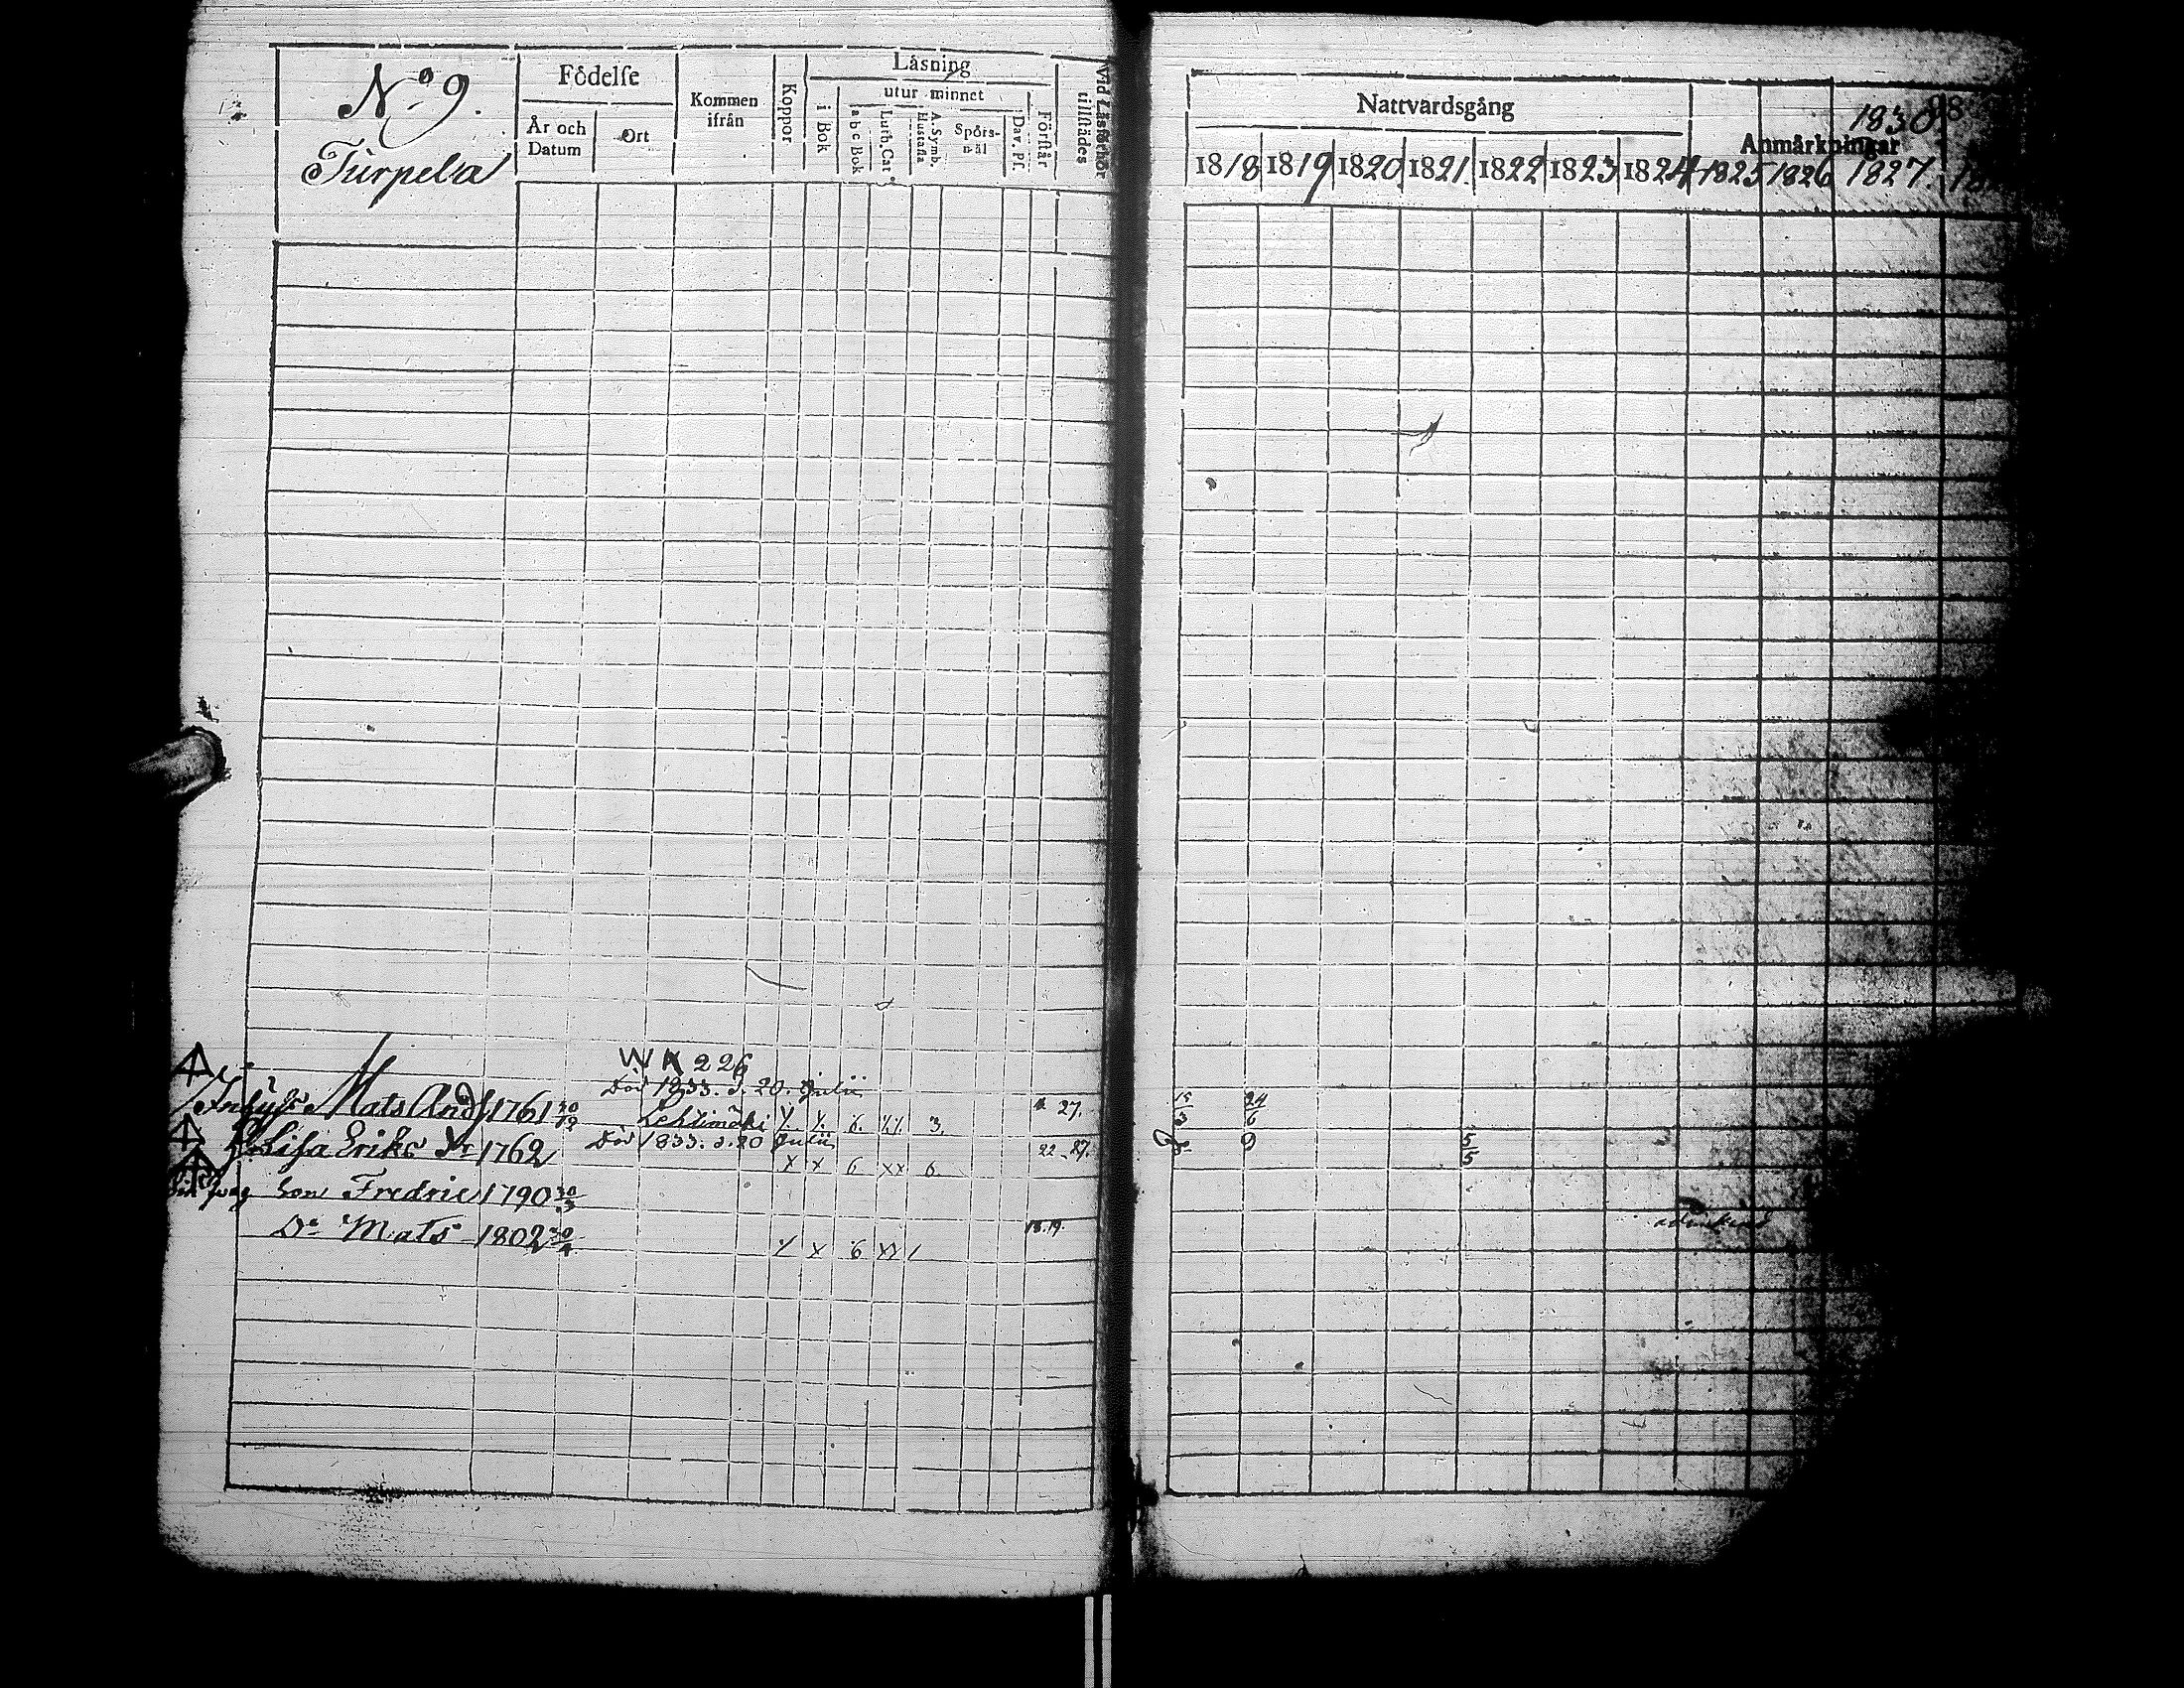 No 9.
Turpela
Födelse
År och Datum
Ort
Kommen ifrån
Koppor
Läsning
utur minnet
i Bok
abc Bok
Luth. Cat
A. Symb. Hustafla
Spörs-mål
Dav. Ps.
Förstår
Vid Läsförhör tillstädes
Nattvardsgång
1818 1819 1820 1821 1822 1823 1824 1825 1826 1827
1830
Anmärkningar
W A 226
Död 1833. d. 20. Julii
Mats And 1761 30/12 Lehtimäki 6. 3. 27. 15/3 24/6
Död 1833. d. 20 Julii
Lisa Eriks Dr 1762 x x 6 xx 6. 22-27. 5/5
Son Fredric 1790 30/3
Do Mats 1802 30/4 x 6 xx / 18.19.